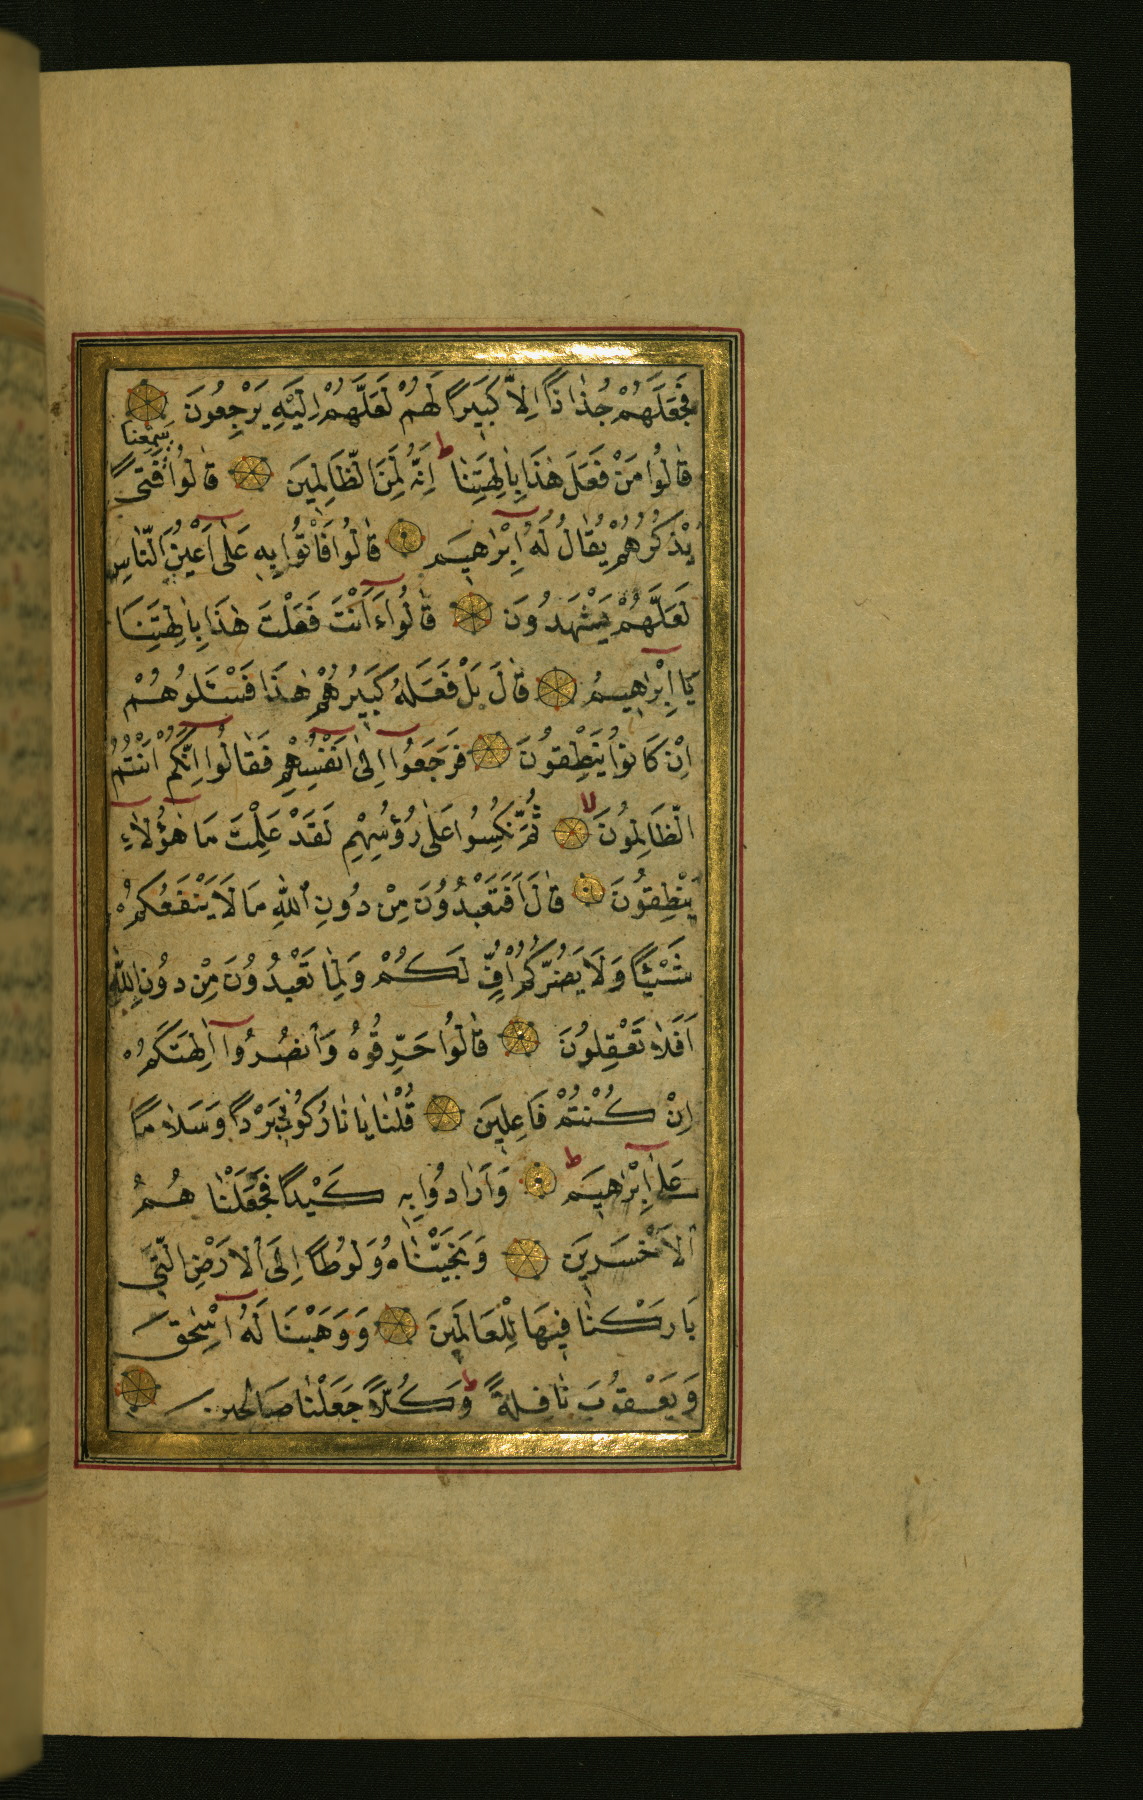 فَجَعَلَهُمْ جُذَاذًا اِلَّا كَبِيرًا لَهُمْ لَعَلَّهُمْ اِلَيْهِ يَرْجِعُونَ
قَالُوا مَنْ فَعَلَ هٰذَا بِاٰلِهَتِنَا ط اِنَّهُ لَمِنَ الظَّالِمِينَ قَالُوا سَمِعْنَا فَتًى
يَذْكُرُهُمْ يُقَالُ لَهُ اِبْرٰهِيمُ قَالُوا فَأْتُوا بِهِ عَلٰى اَعْيُنِ النَّاسِ
لَعَلَّهُمْ يَشْهَدُونَ قَالُوا ءَاَنْتَ فَعَلْتَ هٰذَا بِاٰلِهَتِنَا
يَا اِبْرٰهِيمُ قَالَ بَلْ فَعَلَهُ كَبِيرُهُمْ هٰذَا فَسْـَٔلُوهُمْ
اِنْ كَانُوا يَنْطِقُونَ فَرَجَعُوا اِلٰى اَنْفُسِهِمْ فَقَالُوا اِنَّكُمْ اَنْتُمُ
الظَّالِمُونَ لا ثُمَّ نُكِسُوا عَلٰى رُؤُسِهِمْ لَقَدْ عَلِمْتَ مَا هٰؤُلَاءِ
يَنْطِقُونَ قَالَ اَفَتَعْبُدُونَ مِنْ دُونِ اللّٰهِ مَا لَا يَنْفَعُكُمْ
شَيْـًٔا وَلَا يَضُرُّكُمْ اُفٍّ لَكُمْ وَلِمَا تَعْبُدُونَ مِنْ دُونِ اللّٰهِ
اَفَلَا تَعْقِلُونَ قَالُوا حَرِّقُوهُ وَانْصُرُوا اٰلِهَتَكُمْ
اِنْ كُنْتُمْ فَاعِلِينَ قُلْنَا يَا نَارُ كُونِي بَرْدًا وَسَلَامًا
عَلٰى اِبْرٰهِيمَ ط وَاَرَادُوا بِهِ كَيْدًا فَجَعَلْنَا هُمُ
الْاَخْسَرِينَ وَنَجَّيْنَاهُ وَلُوطًا اِلَى الْاَرْضِ الَّتِي
بَارَكْنَا فِيهَا لِلْعَالَمِينَ وَوَهَبْنَا لَهُ اِسْحٰقَ
وَيَعْقُوبَ نَافِلَةً ط وَكُلًّا جَعَلْنَا صَالِحِينَ